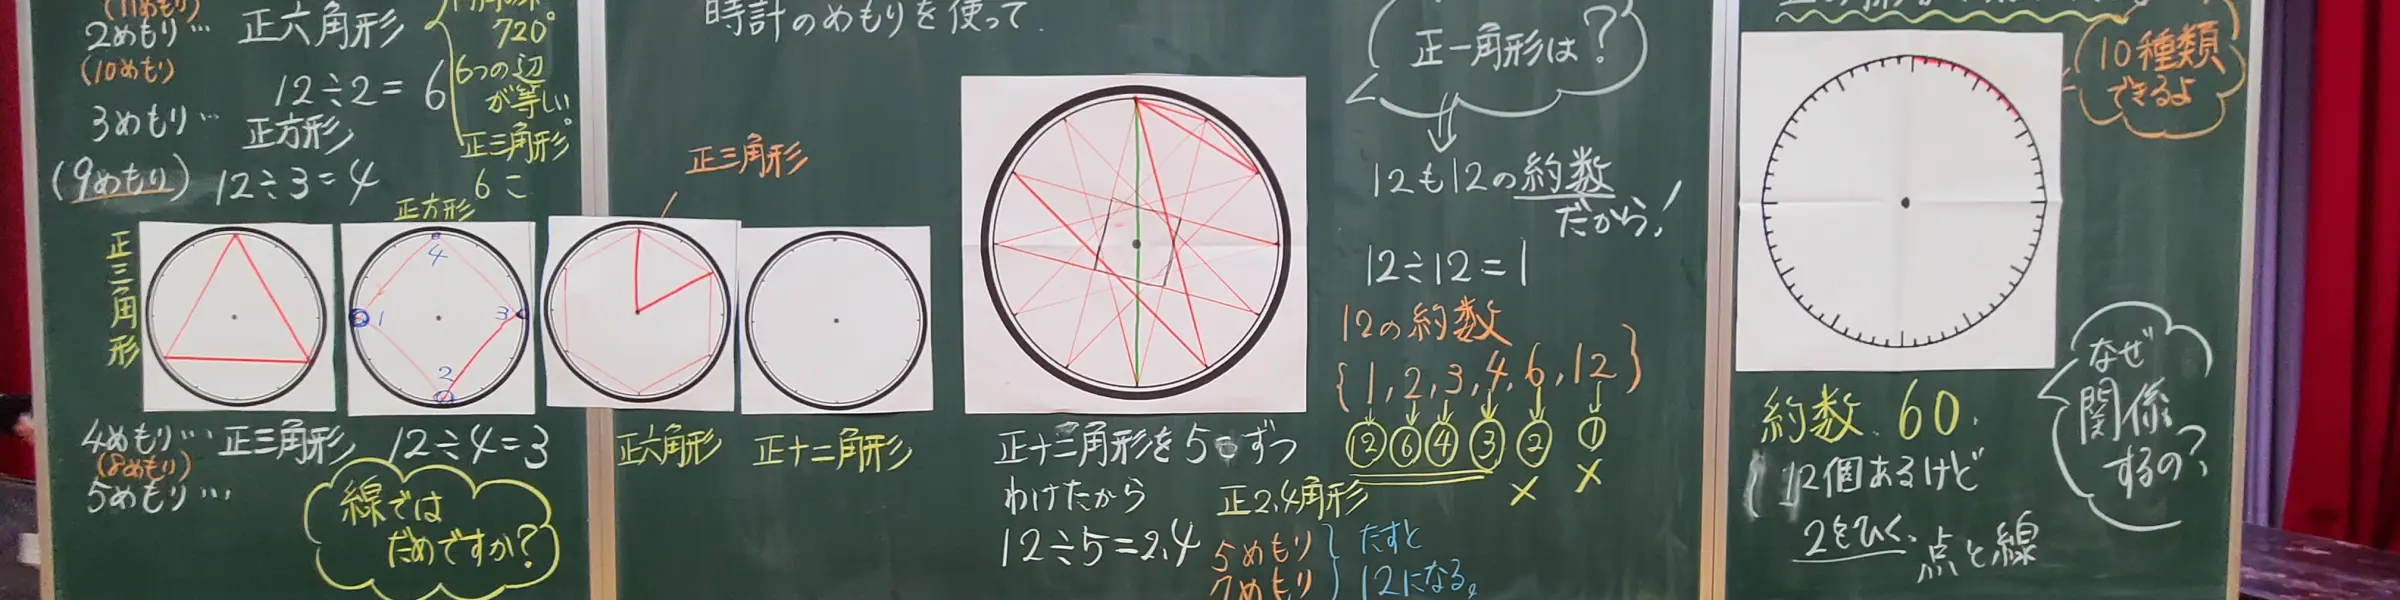 (11めもり)
2めもり… 正六角形
(10めもり)
12÷2=6
720°
6つの辺
が等しい
正三角形
6こ
3めもり…
正方形
(9めもり) 12÷3=4
正三角形
正方形
4
1
3
2
4めもり… 正三角形 12÷4=3
(8めもり)
5めもり…
線では
だめですか?
時計のめもりを使って.
正三角形
正六角形
正十二角形
正十二角形を5こずつ
わけたから
12÷5=2.4
正2.4角形
5めもり
7めもり
たすと
12になる。
正一角形は?
12も12の約数
だから!
12÷12=1
12の約数
{1,2,3,4,6,12}
⑫⑥④③②①
× ×
10種類
できるよ
約数 60.
12個あるけど
2をひく. 点と線
なぜ
関係
するの?